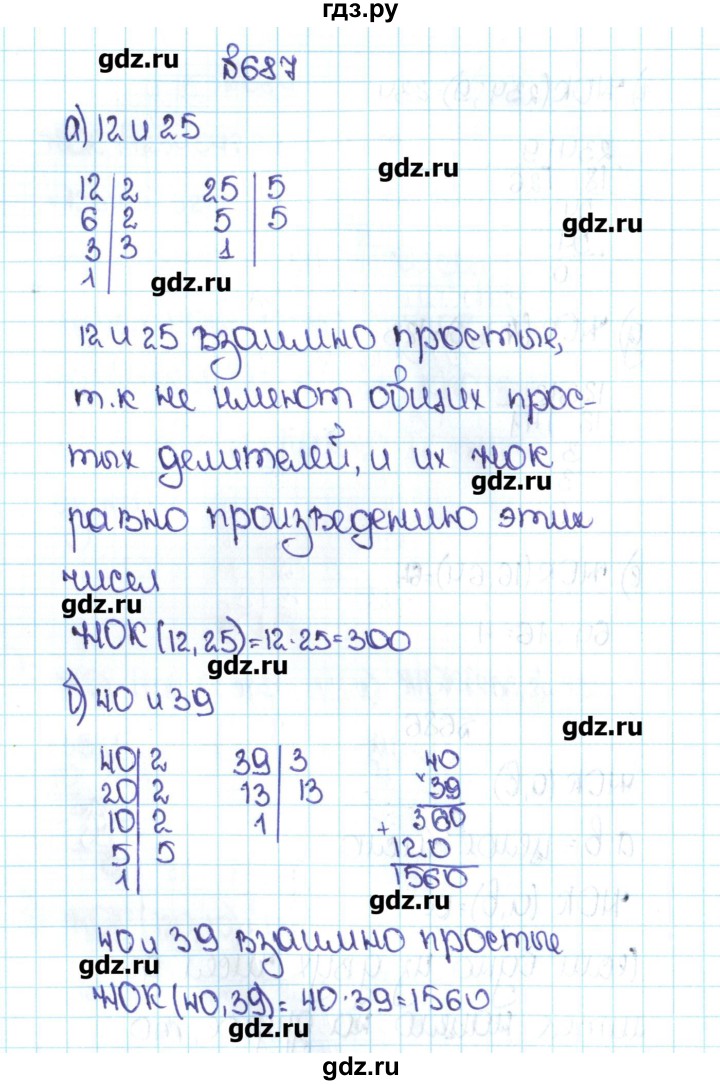 гдз.ру
gdz.ru
№687
а) 12 и 25
gdz.ru
12 | 2   25 | 5
6 | 2   5 | 5
gdz.ru
3 | 3   1 |
1 |
gdz.ru
12 и 25 взаимно простые,
т.к не имеют общих прос-
тых делителей, и их НОК
gdz.ru
равно произведению этих
чисел
gdz.ru
НОК (12, 25) = 12 · 25 = 300
gdz.ru
б) 40 и 39
gdz.ru
40 | 2   39 | 3   40
20 | 2   13 | 13   × 39
10 | 2   1 |   360
5 | 5   + 120
1 |   1560
gdz.ru
40 и 39 взаимно простые
gdz.ru
НОК (40, 39) = 40 · 39 = 1560
gdz.ru
gdz.ru